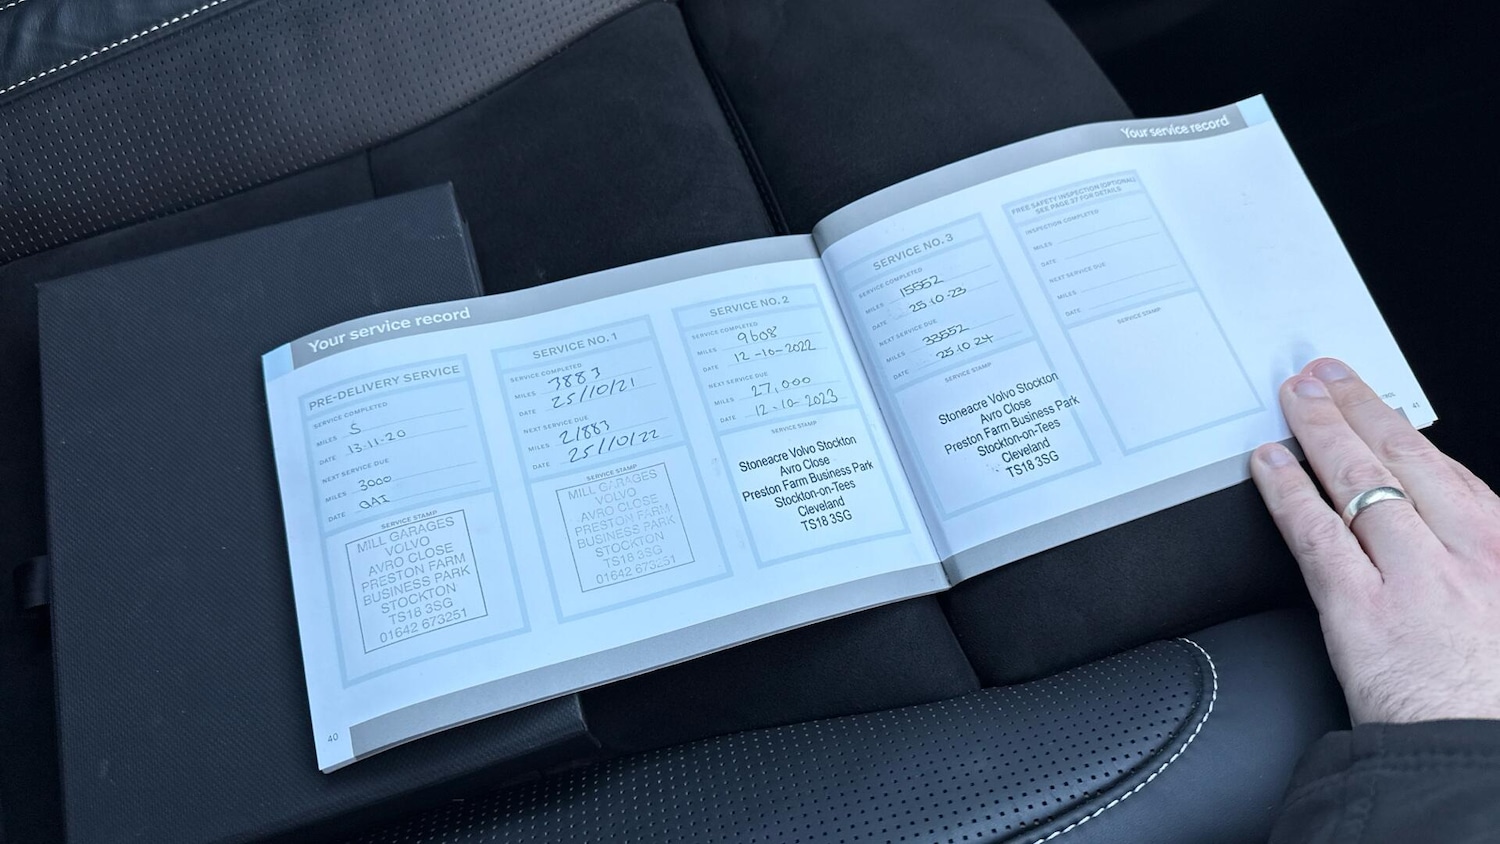 Your service record
PRE-DELIVERY SERVICE
SERVICE COMPLETED
MILES 5
DATE 13.11.20
NEXT SERVICE DUE
MILES 3000
DATE
SERVICE STAMP
MILL GARAGES
VOLVO
AVRO CLOSE
PRESTON FARM
BUSINESS PARK
STOCKTON
TS18 3SG
01642 673251
40
SERVICE NO. 1
SERVICE COMPLETED
MILES 3883
DATE 25/10/21
NEXT SERVICE DUE
MILES 21883
DATE 25/10/22
SERVICE STAMP
MILL GARAGES
VOLVO
AVRO CLOSE
PRESTON FARM
BUSINESS PARK
STOCKTON
TS18 3SG
01642 673251
SERVICE NO. 2
SERVICE COMPLETED
MILES 9608
DATE 12-10-2022
NEXT SERVICE DUE
MILES 27,000
DATE 12-10-2023
SERVICE STAMP
Stoneacre Volvo Stockton
Avro Close
Preston Farm Business Park
Stockton-on-Tees
Cleveland
TS18 3SG
Your service record
SERVICE NO. 3
SERVICE COMPLETED
MILES 15552
DATE 25.10.23
NEXT SERVICE DUE
MILES 33552
DATE 25.10.24
SERVICE STAMP
Stoneacre Volvo Stockton
Avro Close
Preston Farm Business Park
Stockton-on-Tees
Cleveland
TS18 3SG
FREE SAFETY INSPECTION (OPTIONAL)
SEE PAGE 37 FOR DETAILS
INSPECTION COMPLETED
MILES
DATE
NEXT SERVICE DUE
MILES
DATE
SERVICE STAMP
41